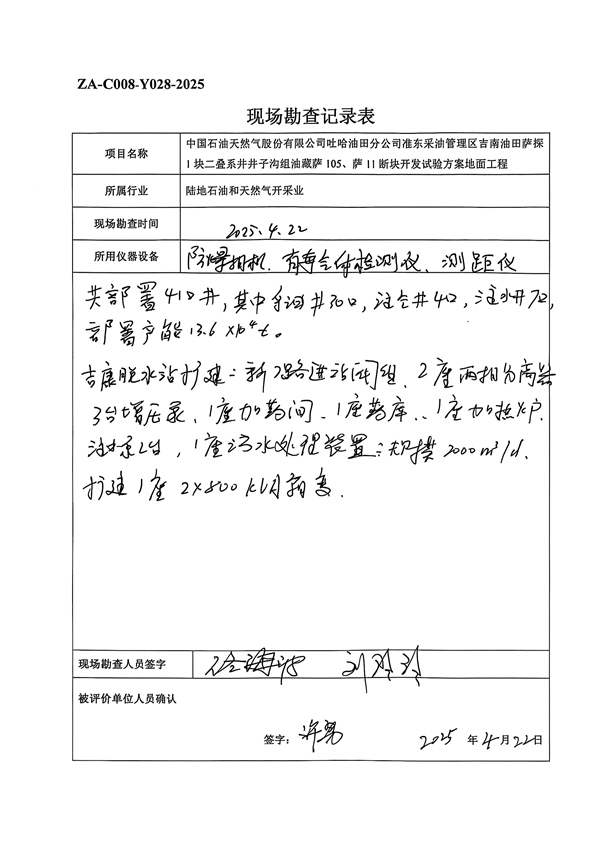 ZA-C008-Y028-2025
现场勘查记录表
项目名称
中国石油天然气股份有限公司吐哈油田分公司准东采油管理区吉南油田萨探
1块二叠系井井子沟组油藏萨105、萨11断块开发试验方案地面工程
所属行业
陆地石油和天然气开采业
现场勘查时间
2025.4.22
所用仪器设备
防爆相机、有毒气体检测仪、测距仪
共部署41口井,其中采油井30口,注气井4口,注水井7口,
部署产能13.6×10⁴t。
吉康脱水站扩建:新 路进站阀组、2座两相分离器
3台增压泵、1座加药间、1座药库、1座加热炉
1座污水处理装置:规模2000m³/d.
扩建1座2×800kVA箱变.
现场勘查人员签字
被评价单位人员确认
签字:
2025年4月22日